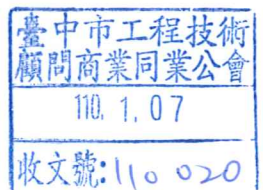 臺中市工程技術
顧問商業同業公會
110. 1. 07
收文號:110 020